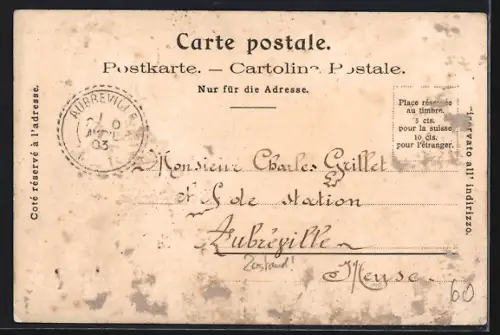 Carte postale.
Postkarte. — Cartolina Postale.
Nur für die Adresse.
Côté réservé à l'adresse.
Place réservée
au timbre.
5 cts.
pour la suisse
10 cts.
pour l'étranger.
Riservato all' indirizzo.
AUBREVILLE
03
Monsieur Charles Grillet
de station
Aubréville
Meuse
60